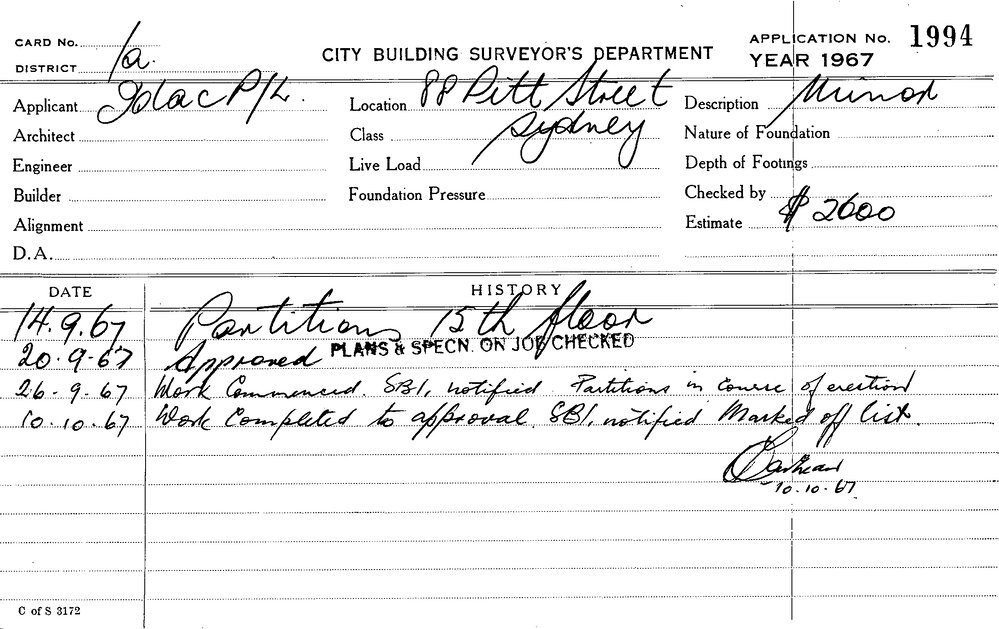 CARD No.
DISTRICT 1a.
CITY BUILDING SURVEYOR'S DEPARTMENT
APPLICATION No. 1994
YEAR 1967
Applicant P/L. Location 88 Pitt Street Description Minor
Architect Class Sydney Nature of Foundation
Engineer Live Load Depth of Footings
Builder Foundation Pressure Checked by
Alignment Estimate $ 2600
D.A.
DATE HISTORY
14.9.67 Partitions 15th floor
20.9.67 Approved PLANS & SPECN. ON JOB CHECKED
26.9.67 Work Commenced. SBI, notified Partitions in course of erection
10.10.67 Work Completed to approval. SBI, notified Marked off list.
10.10.67.
C of S 3172